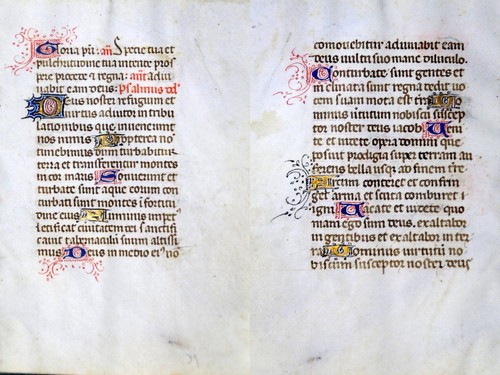 Gloria pri. añ Specie tua et
pulchritudine tua intende pros
pere procede et regna. añt adiu
uabit eam deus. Psalmus xlv
Deus noster refugium et
uirtus adiutor in tribu
lationibus que inuenerunt
nos nimis Propterea no
timebimus dum turbabitur
terra et transferentur montes
in cor maris Sonuerunt et
turbate sunt aque eorum con
turbati sunt montes i fortitu
dine eius Fluminis impet⁹
letificat ciuitatem dei sanctifi
cauit tabernaculu suum altissi
mus Deus in medio ei⁹ no
comouebitur adiuuabit eam
deus uultu suo mane diluculo.
Conturbate sunt gentes et
inclinata sunt regna dedit uo
cem suam mota est terra Do
minus uirtutum nobiscu suscep
tor noster deus iacob Ueni
te et uidete opera domini que
posuit prodigia super terram au
ferens bella usq; ad finem terre
Arcum conteret et confrin
get arma et scuta comburet i
gni Uacate et uidete quo
niam ego sum deus. exaltabor
in gentibus et exaltabor in ter
ra Dominus uirtutu no
biscum susceptor noster deus